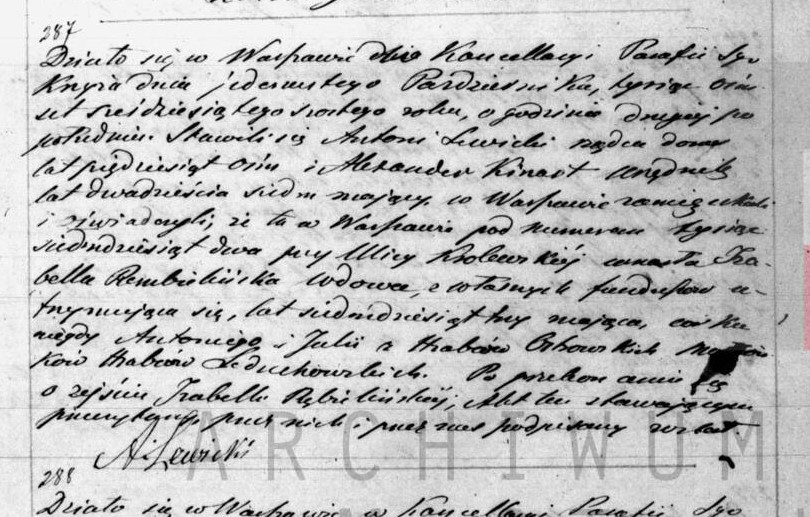 287
Działo się w Warszawie dnia Kancellaryi Parafii Sgo
Krzyża dnia jedenastego Pazdziernika, tysiąc ośm
set sześćdziesiątego szostego roku, o godzinie drugiej po
południu. Stawili się Antoni Lewicki rządca domu
lat pięćdziesiąt ośm i Alexander Kinast urzędnik
lat dwadzieścia siedm mający, w Warszawie zamieszkali
i oświadczyli, że tu w Warszawie pod numerem tysiąc
siedmdziesiąt dwa przy Ulicy Krolewskiéj umarła Iza-
bella Rembielińska wdowa, z własnych funduszów u-
trzymująca się, lat siedmdziesiąt trzy mająca, córka
niegdy Antoniego i Julii z Hrabiów
ków Hrabiów Leduchowskich. Po przekonaniu się
o zejściu Izabelli Rębielińskiéj, Akt ten stawającym
przeczytany przez nich i przez nas podpisany został.
A. Lewicki
288
Działo się w Warszawie w Kancellaryi Parafii Sgo
ARCHIWUM